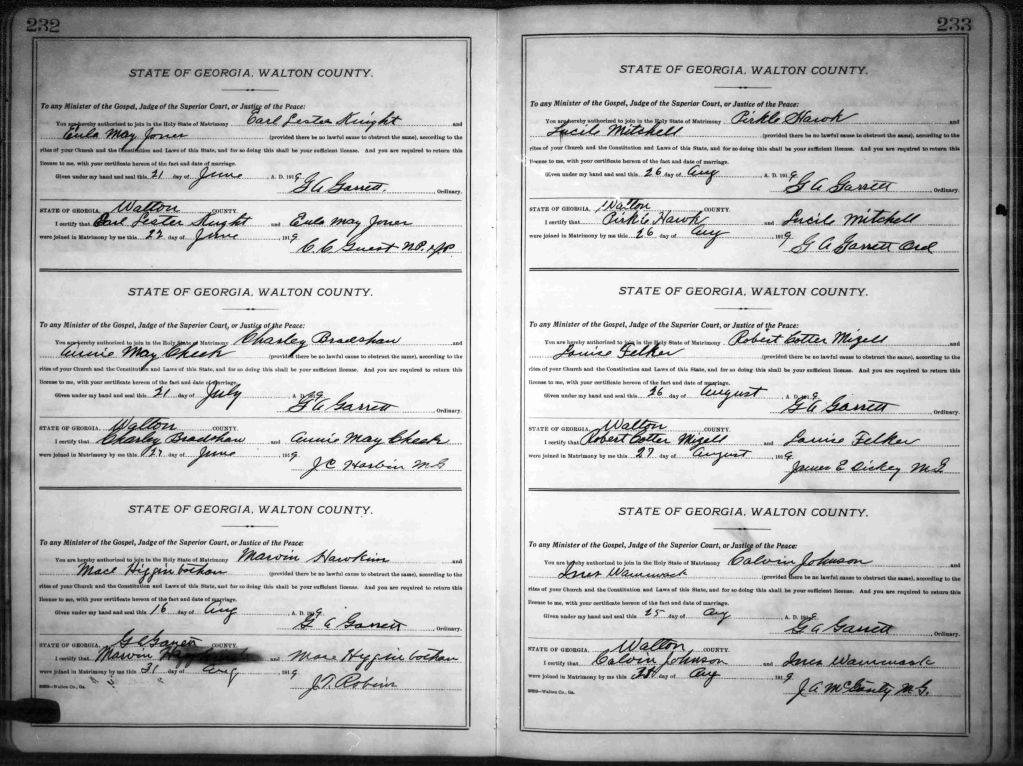 232
STATE OF GEORGIA, WALTON COUNTY.
To any Minister of the Gospel, Judge of the Superior Court, or Justice of the Peace:
You are hereby authorized to join in the Holy State of Matrimony Earl Lester Knight and
Eula May Jones (provided there be no lawful cause to obstruct the same), according to the
rites of your Church and the Constitution and Laws of this State, and for so doing this shall be your sufficient license. And you are required to return this
license to me, with your certificate hereon of the fact and date of marriage.
Given under my hand and seal this 21 day of June, A. D. 1919
G A Garrett, Ordinary.
STATE OF GEORGIA, Walton COUNTY.
I certify that Earl Lester Knight and Eula May Jones
were joined in Matrimony by me this 22 day of June 1919
C. C. Guest N.P.
STATE OF GEORGIA, WALTON COUNTY.
To any Minister of the Gospel, Judge of the Superior Court, or Justice of the Peace:
You are hereby authorized to join in the Holy State of Matrimony Charley Bradshaw and
Annie May Cheek (provided there be no lawful cause to obstruct the same), according to the
rites of your Church and the Constitution and Laws of this State, and for so doing this shall be your sufficient license. And you are required to return this
license to me, with your certificate hereon of the fact and date of marriage.
Given under my hand and seal this 21 day of July, A. D. 1919
G A Garrett, Ordinary.
STATE OF GEORGIA, Walton COUNTY.
I certify that Charley Bradshaw and Annie May Cheek
were joined in Matrimony by me this day of June 1919
J C Harbin M G
STATE OF GEORGIA, WALTON COUNTY.
To any Minister of the Gospel, Judge of the Superior Court, or Justice of the Peace:
You are hereby authorized to join in the Holy State of Matrimony Marvin Hawkins and
Mace Higginbothan (provided there be no lawful cause to obstruct the same), according to the
rites of your Church and the Constitution and Laws of this State, and for so doing this shall be your sufficient license. And you are required to return this
license to me, with your certificate hereon of the fact and date of marriage.
Given under my hand and seal this 16 day of Aug A. D. 1919
G A Garrett, Ordinary.
STATE OF GEORGIA, COUNTY.
I certify that Marvin and Mace Higginbothan
were joined in Matrimony by me this 31 day of Aug 1919
J. T. Robins
Walton Co., Ga.
233
STATE OF GEORGIA, WALTON COUNTY.
To any Minister of the Gospel, Judge of the Superior Court, or Justice of the Peace:
You are hereby authorized to join in the Holy State of Matrimony Pirkle Hawk and
Lucile Mitchell (provided there be no lawful cause to obstruct the same), according to the
rites of your Church and the Constitution and Laws of this State, and for so doing this shall be your sufficient license. And you are required to return this
license to me, with your certificate hereon of the fact and date of marriage.
Given under my hand and seal this 26 day of Aug A. D. 1919
G A Garrett, Ordinary.
STATE OF GEORGIA, Walton COUNTY.
I certify that Pirkle Hawk and Lucile Mitchell
were joined in Matrimony by me this 26 day of Aug 1919
G A Garrett Ord
STATE OF GEORGIA, WALTON COUNTY.
To any Minister of the Gospel, Judge of the Superior Court, or Justice of the Peace:
You are hereby authorized to join in the Holy State of Matrimony Robert Cotter Mizell and
Louise Felker (provided there be no lawful cause to obstruct the same), according to the
rites of your Church and the Constitution and Laws of this State, and for so doing this shall be your sufficient license. And you are required to return this
license to me, with your certificate hereon of the fact and date of marriage.
Given under my hand and seal this 26 day of August, A. D. 1919
G A Garrett, Ordinary.
STATE OF GEORGIA, Walton COUNTY.
I certify that Robert Cotter Mizell and Louise Felker
were joined in Matrimony by me this 27 day of August, 1919
James E Dickey M G
STATE OF GEORGIA, WALTON COUNTY.
To any Minister of the Gospel, Judge of the Superior Court, or Justice of the Peace:
You are hereby authorized to join in the Holy State of Matrimony Calvin Johnson and
Inez Wammack (provided there be no lawful cause to obstruct the same), according to the
rites of your Church and the Constitution and Laws of this State, and for so doing this shall be your sufficient license. And you are required to return this
license to me, with your certificate hereon of the fact and date of marriage.
Given under my hand and seal this 25 day of Aug A. D. 1919
G A Garrett, Ordinary.
STATE OF GEORGIA, Walton COUNTY.
I certify that Calvin Johnson and Inez Wammack
were joined in Matrimony by me this day of Aug 1919
J A McGanty M. G.
Walton Co., Ga.